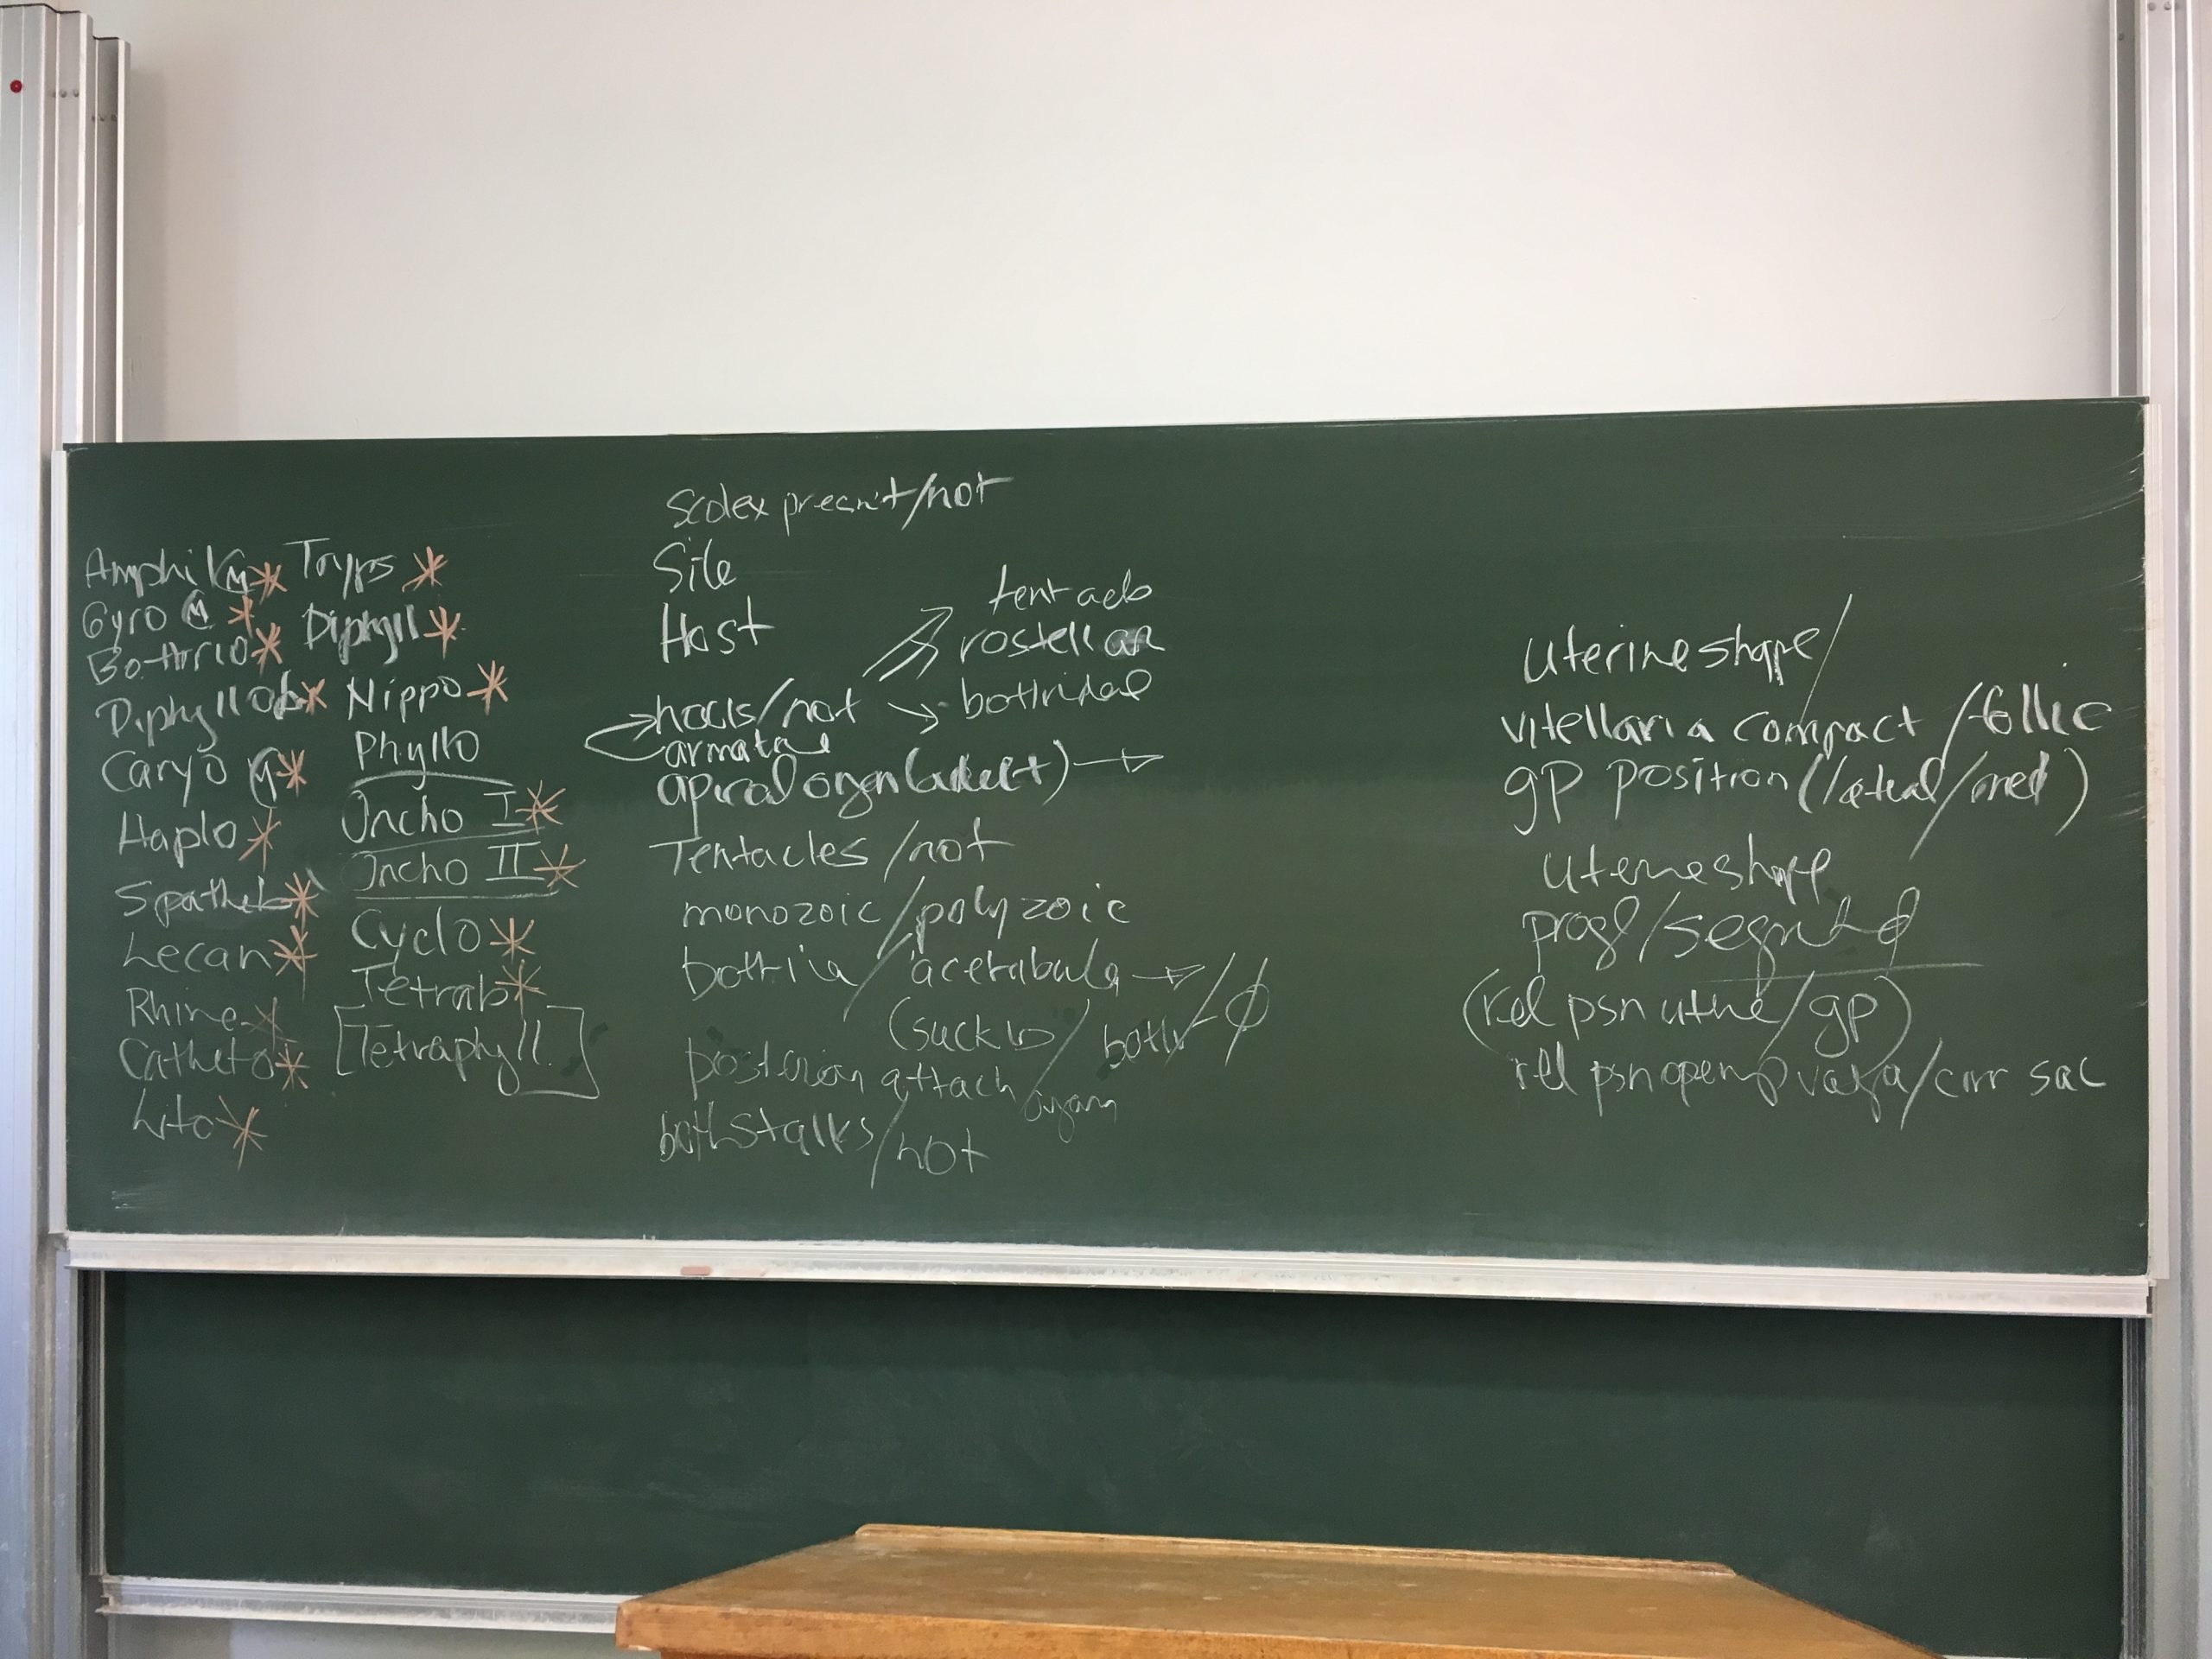 Amphi M*
Gyro M *
Bothrio*
Diphyllob*
Caryo M*
Haplo*
Spatheb*
Lecan*
Rhine*
Catheto*
Lito*
Tryps *
Diphyll*
Nippo*
Phyllo
Oncho I*
Oncho II*
Cyclo*
Tetrab*
[Tetraphyll.]
Scolex present/not
Site
Host
hooks/not
armature
tentac
rostellar
bothridal
apical organ (adult) →
Tentacles/not
monozoic/polyzoic
bothria/acetabula → /∅
(suckers/both
posterior attach organ
both stalks/not
Uterine shape/
vitellaria compact/follic
gp position (lateral/med)
Uterine shape
progl/segmented
(rel psn uterine/gp)
rel psn opening vagina/cirr sac